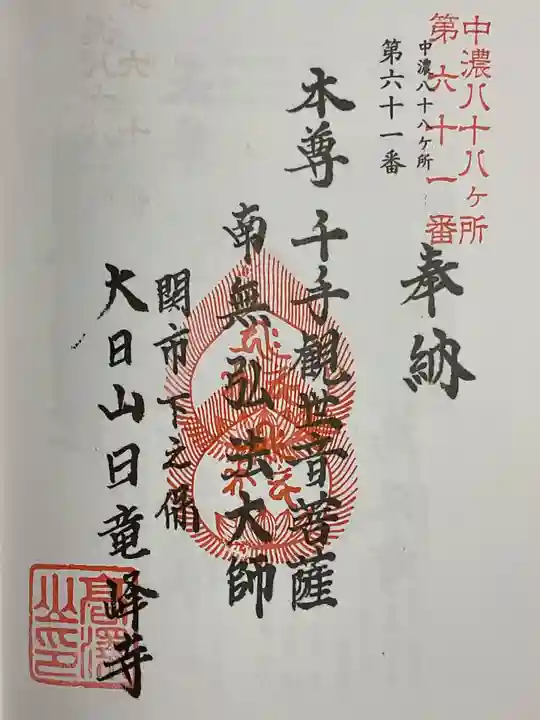 中濃八十八ヶ所
第六十一番
中濃八十八ケ所
第六十一番
奉納
本尊千手観世音菩薩
南無弘法大師
関市下之保
大日山日竜峰寺
高澤
山印